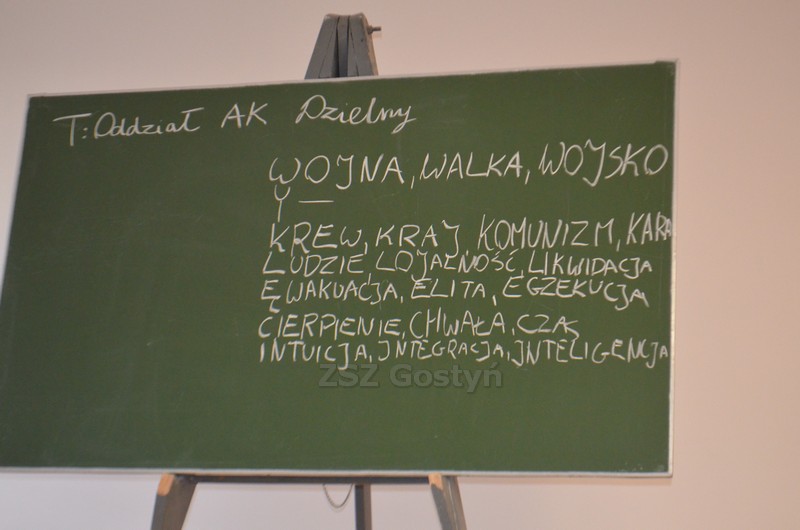 T: Oddział AK Dzielny
WOJNA, WALKA, WOJSKO
Y —
KREW, KRAJ, KOMUNIZM, KARA
LUDZIE LOJALNOŚĆ, LIKWIDACJA
EWAKUACJA, ELITA, EGZEKUCJA
CIERPIENIE, CHWAŁA, CZAS
INTUICJA, INTEGRACJA, INTELIGENCJA
ZSZ Gostyń